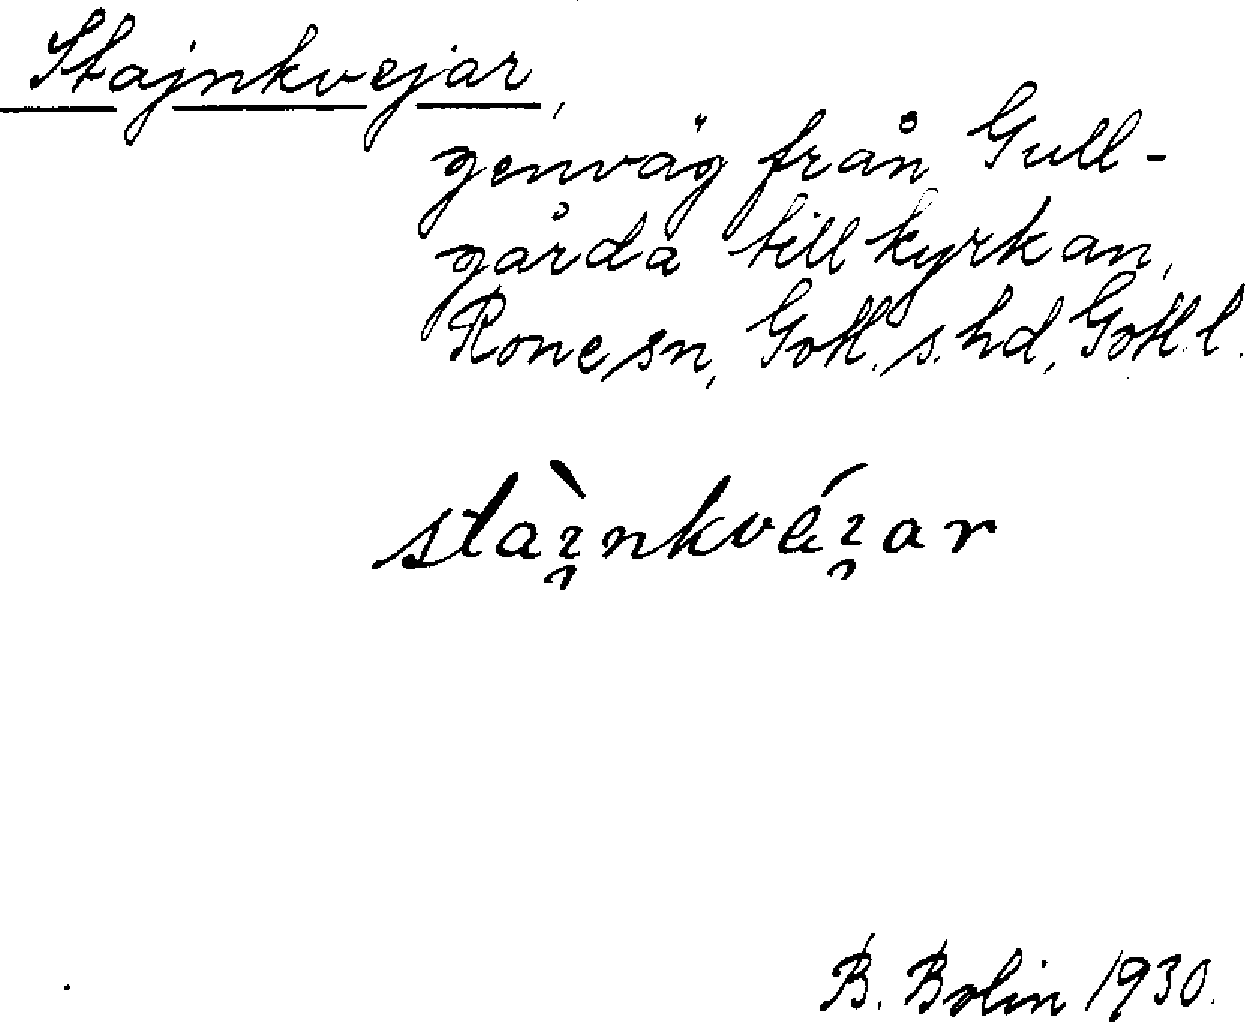 Stajnkvejar,
genväg från Gull-
gårda till kyrkan,
Rone sn, Gotl. s. hd, Gotl. l.
B. Bolin 1930.